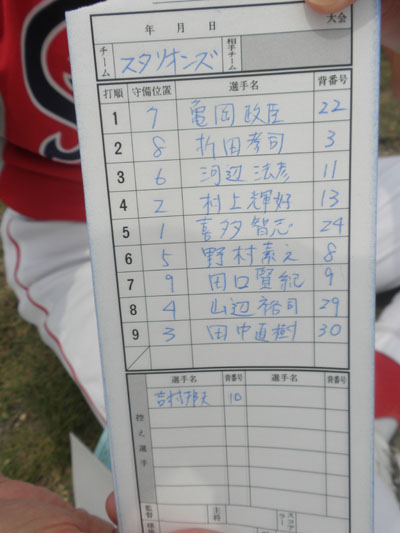 大会
年 月 日
チーム スタリオンズ 相手チーム
打順 守備位置 選手名 背番号
1 7 亀岡政臣 22
2 8 折田孝司 3
3 6 河辺法彦 11
4 2 村上輝好 13
5 1 喜多智志 24
6 5 野村素之 8
7 9 田口賢紀 9
8 4 山辺裕司 29
9 3 田中直樹 30
選手名 背番号 選手名 背番号
控え選手
吉村邦夫 10
監督 主将 スコアラー